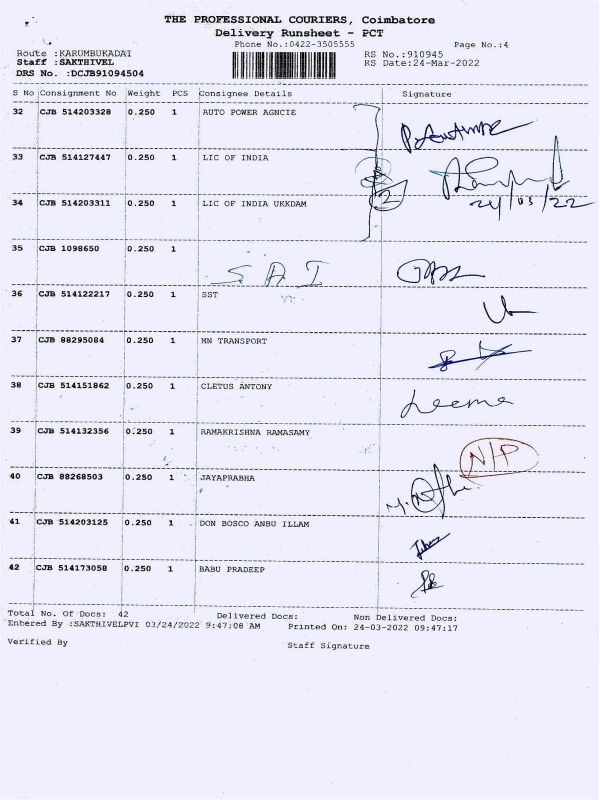 THE PROFESSIONAL COURIERS, Coimbatore
Delivery Runsheet - PCT
Phone No.:0422-3505555 Page No.:4
Route :KARUMBUKADAI RS No.:910945
Staff :SAKTHIVEL RS Date:24-Mar-2022
DRS No. :DCJB91094504
S No Consignment No Weight PCS Consignee Details Signature
32 CJB 514203328 0.250 1 AUTO POWER AGNCIE
33 CJB 514127447 0.250 1 LIC OF INDIA
2
34 CJB 514203311 0.250 1 LIC OF INDIA UKKDAM 24/03/22
35 CJB 1098650 0.250 1
S A I
36 CJB 514122217 0.250 1 SST
37 CJB 88295084 0.250 1 MN TRANSPORT
38 CJB 514151862 0.250 1 CLETUS ANTONY
Leema
39 CJB 514132356 0.250 1 RAMAKRISHNA RAMASAMY
N/P
40 CJB 88268503 0.250 1 JAYAPRABHA
41 CJB 514203125 0.250 1 DON BOSCO ANBU ILLAM
42 CJB 514173058 0.250 1 BABU PRADEEP
Total No. Of Docs: 42 Delivered Docs: Non Delivered Docs:
Entered By :SAKTHIVELPVI 03/24/2022 9:47:08 AM Printed On: 24-03-2022 09:47:17
Verified By Staff Signature